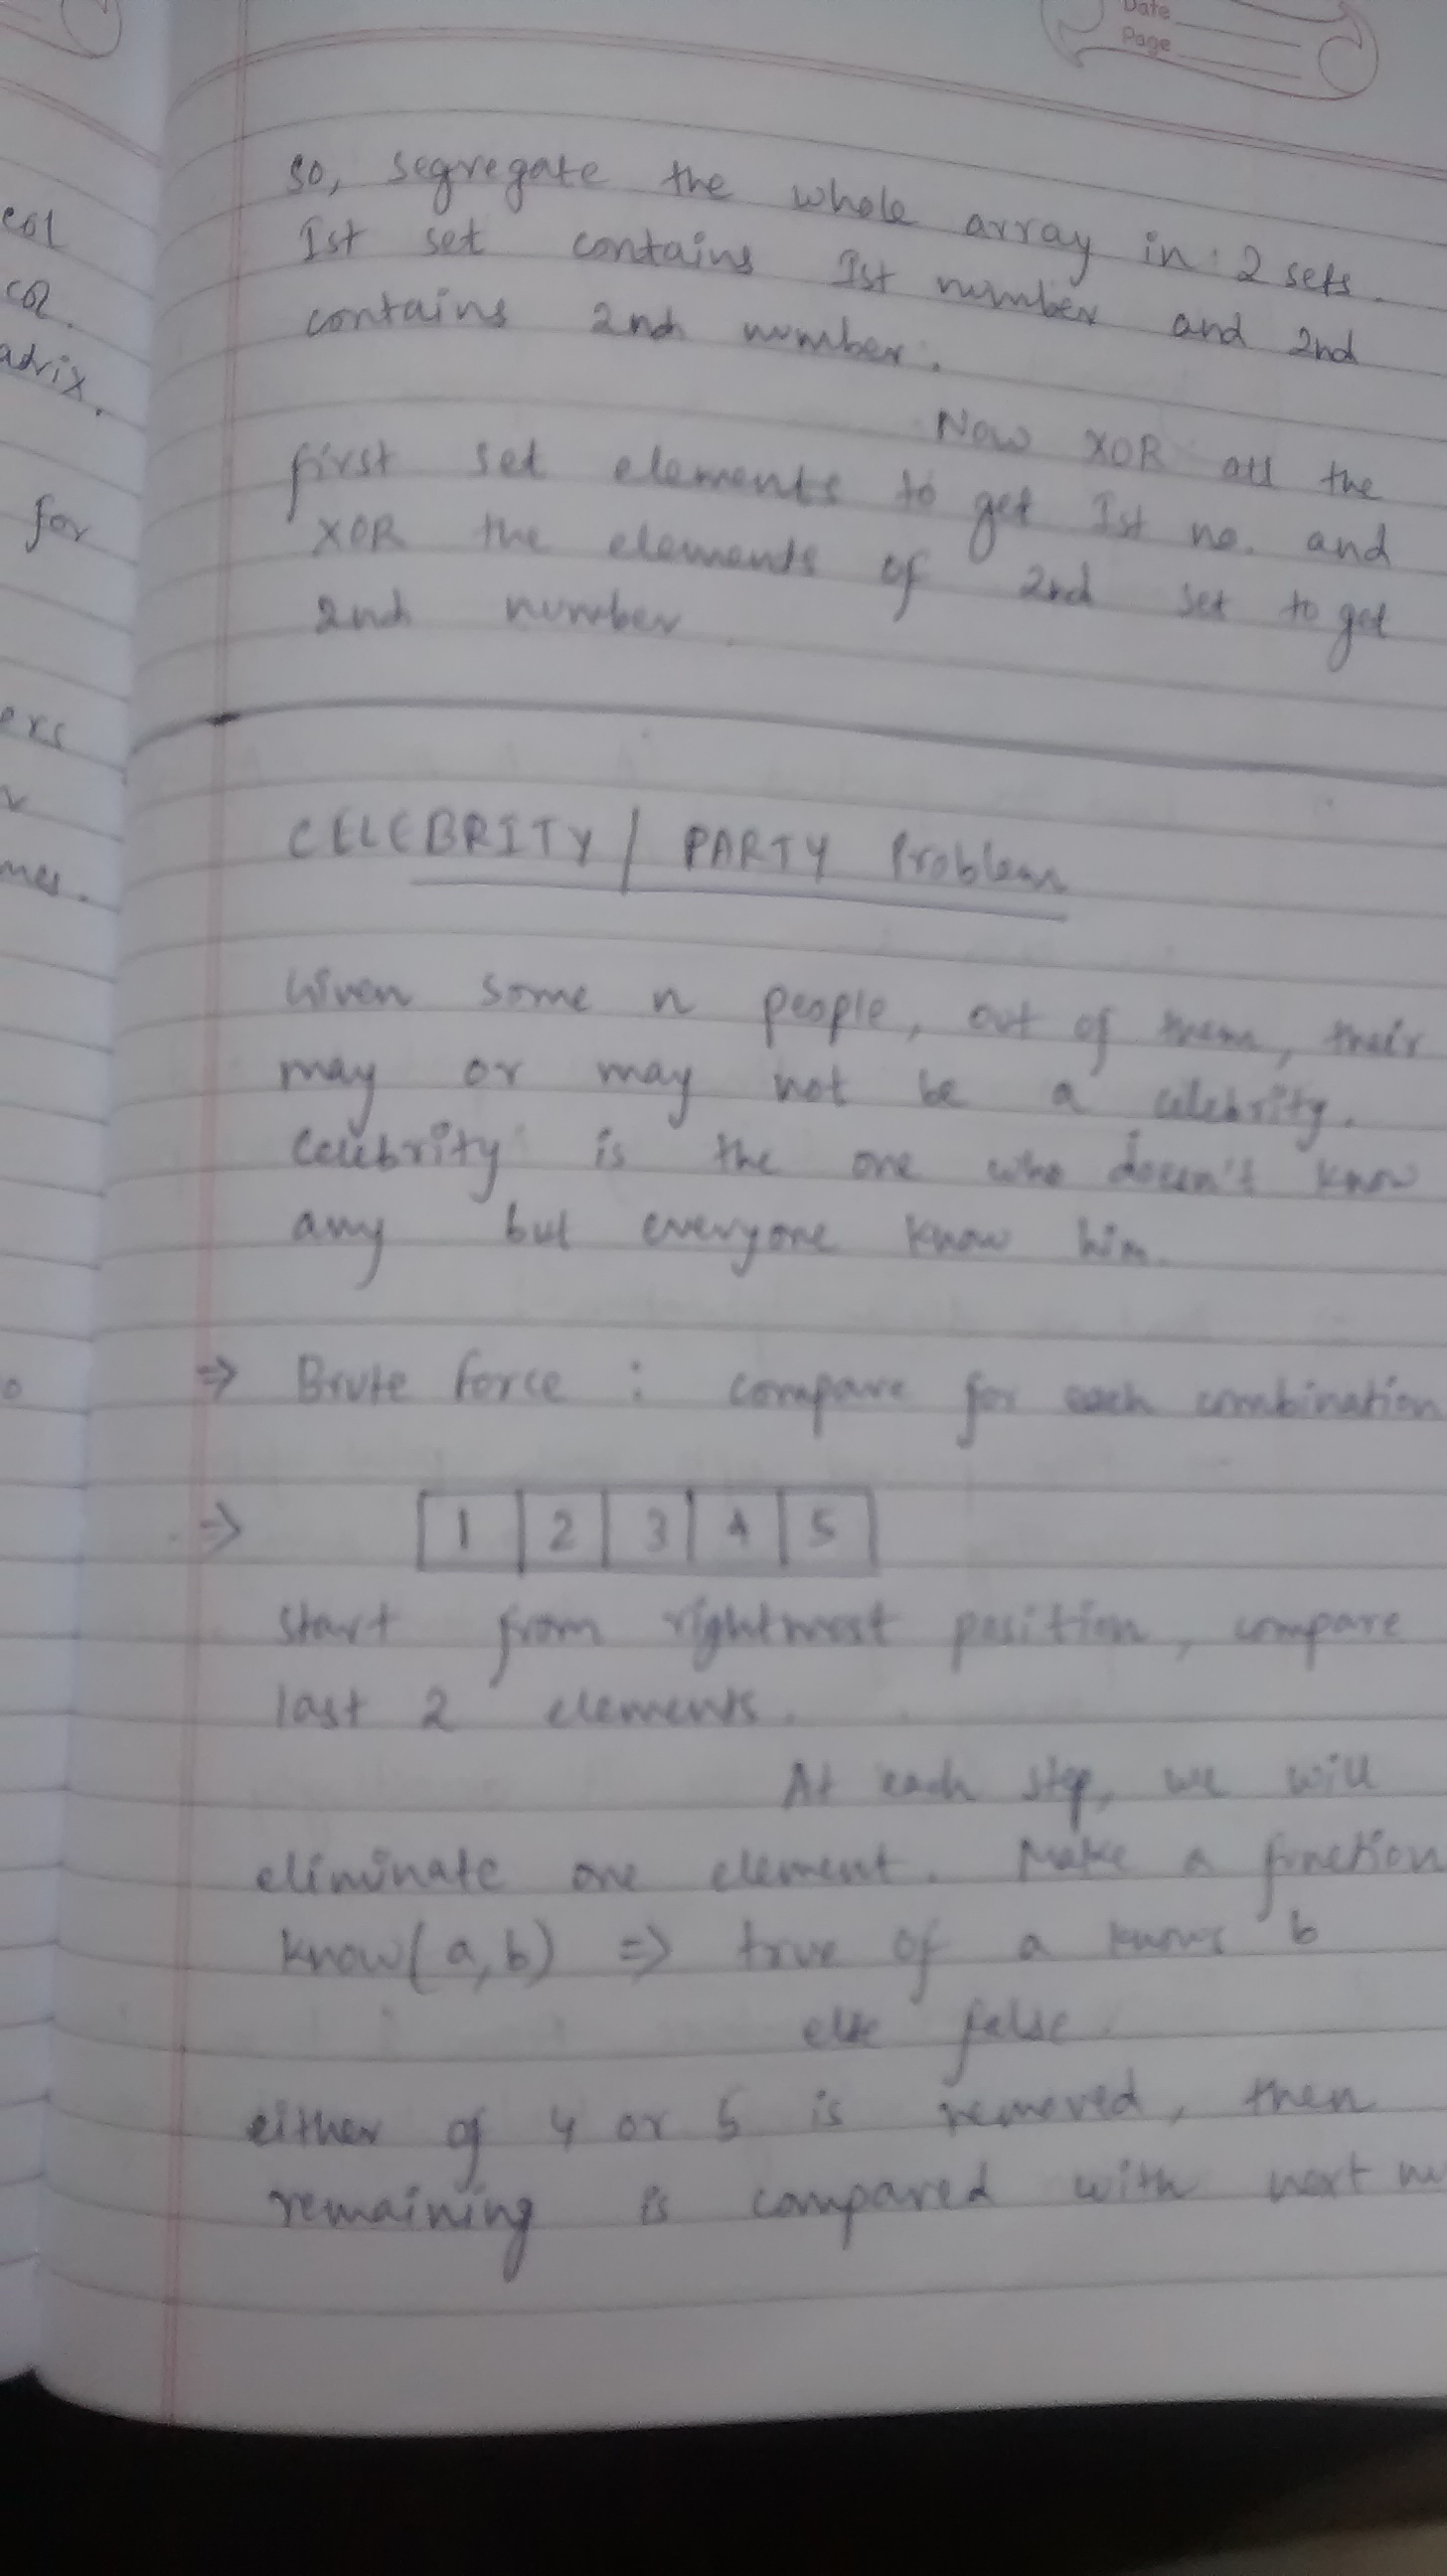 Date
Page
so, segregate the whole array in 2 sets.
Ist set contains Ist number and 2nd
contains 2nd number.
Now XOR all the
first set elements to get Ist no. and
XOR the elements of 2nd set to get
2nd number
CELEBRITY / PARTY Problem
Given some n people, out of them, their
may or may not be a celebrity.
Celebrity is the one who doesn't know
any but everyone know him.
⇒ Brute force : compare for each combination
⇒ 1 2 3 4 5
start from rightmost position, compare
last 2 elements.
At each step, we will
eliminate one element. Make a function
know(a,b) ⇒ true of a knows b
else false.
either of 4 or 5 is removed, then
remaining is compared with next
col
adrix.
for